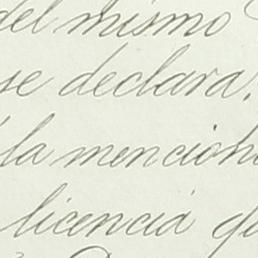 del mismo
se declara
la mencion
licencia